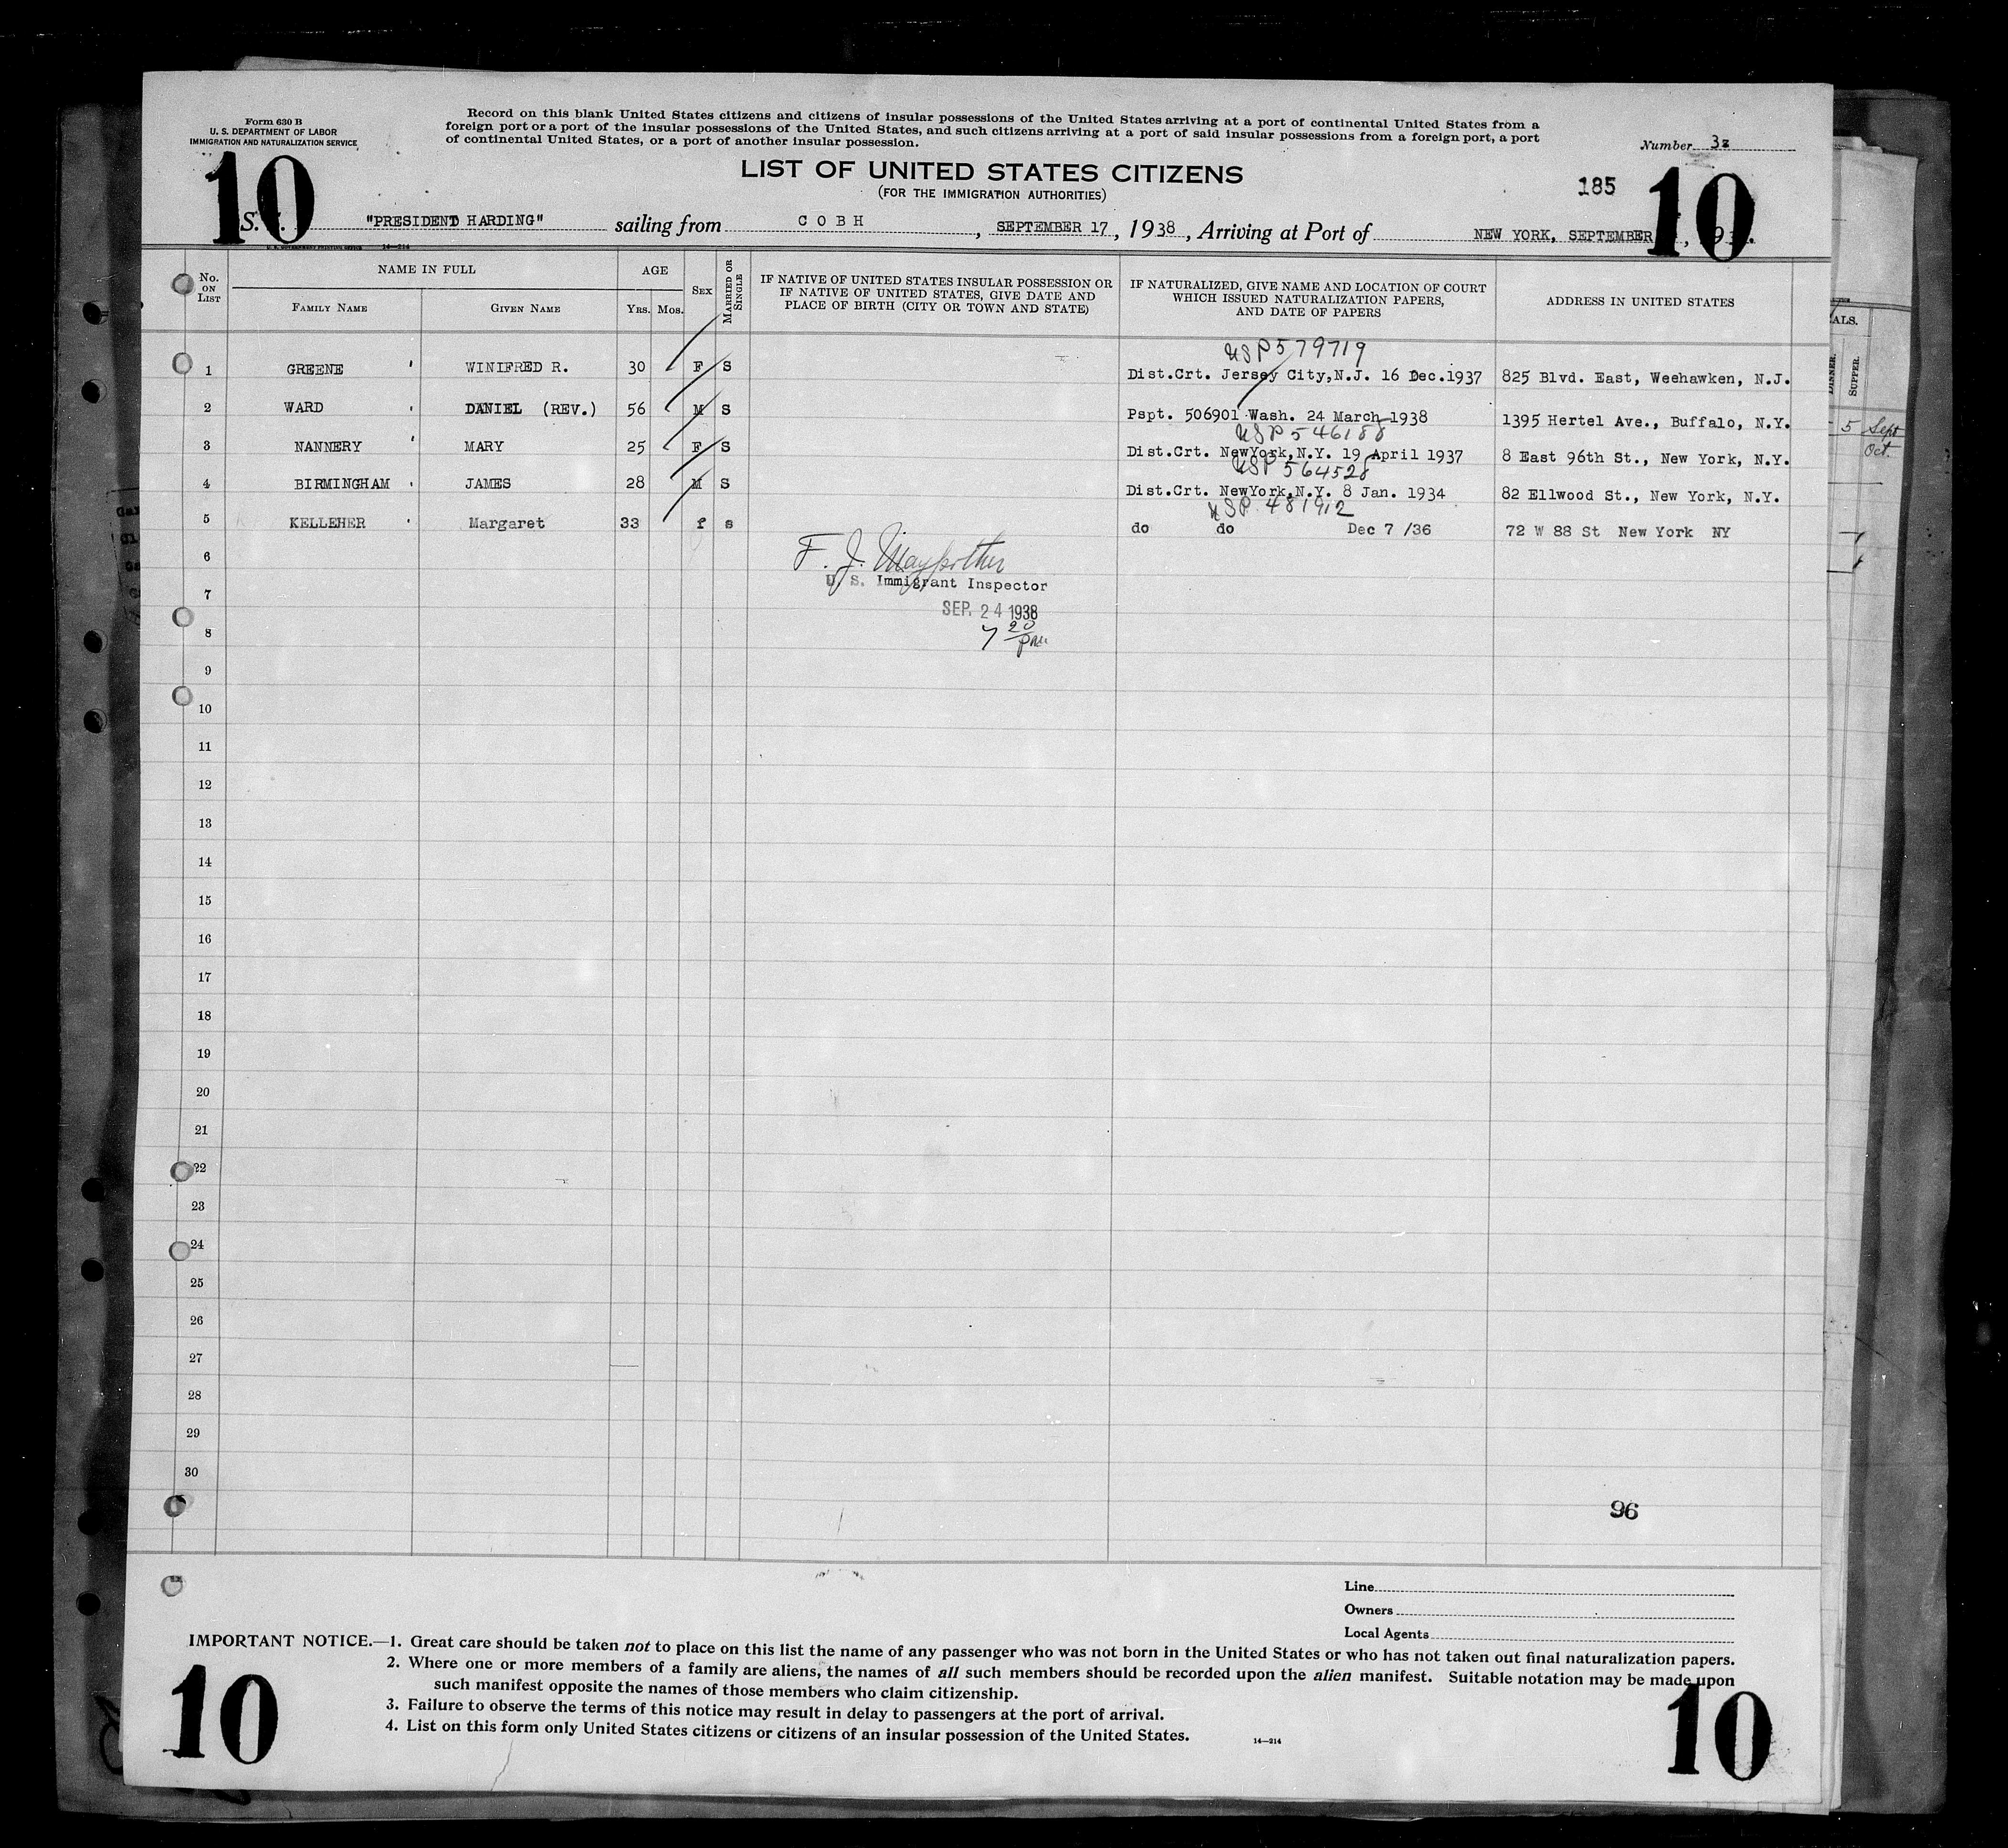 Form 630 B
U. S. DEPARTMENT OF LABOR
IMMIGRATION AND NATURALIZATION SERVICE
Record on this blank United States citizens and citizens of insular possessions of the United States arriving at a port of continental United States from a
foreign port or a port of the insular possessions of the United States, and such citizens arriving at a port of said insular possessions from a foreign port, a port
of continental United States, or a port of another insular possession.
Number
LIST OF UNITED STATES CITIZENS
(FOR THE IMMIGRATION AUTHORITIES)
185
10 10
S. "PRESIDENT HARDING" sailing from COBH, SEPTEMBER 17, 1938, Arriving at Port of NEW YORK, SEPTEMBER
U. S. GOVERNMENT PRINTING OFFICE 14—214
No. ON LIST NAME IN FULL AGE SEX MARRIED OR SINGLE IF NATIVE OF UNITED STATES INSULAR POSSESSION OR IF NATIVE OF UNITED STATES, GIVE DATE AND PLACE OF BIRTH (CITY OR TOWN AND STATE) IF NATURALIZED, GIVE NAME AND LOCATION OF COURT WHICH ISSUED NATURALIZATION PAPERS, AND DATE OF PAPERS ADDRESS IN UNITED STATES
FAMILY NAME GIVEN NAME YRS. MOS.
USP 579719
1 GREENE WINIFRED R. 30 F S Dist.Crt. Jersey City,N.J. 16 Dec.1937 825 Blvd. East, Weehawken, N.J.
2 WARD DANIEL (REV.) 56 M S Pspt. 506901 Wash. 24 March 1938 1395 Hertel Ave., Buffalo, N.Y.
USP 546188
3 NANNERY MARY 25 F S Dist.Crt. NewYork,N.Y. 19 April 1937 8 East 96th St., New York, N.Y.
USP 564528
4 BIRMINGHAM JAMES 28 M S Dist.Crt. NewYork,N.Y. 8 Jan. 1934 82 Ellwood St., New York, N.Y.
USP. 481912
5 KELLEHER Margaret 33 f s do do Dec 7 /36 72 W 88 St New York NY
6
F. J.
U. S. Immigrant Inspector
7
SEP. 24 1938
8
7 20 pm
9
10
11
12
13
14
15
16
17
18
19
20
21
22
23
24
25
26
27
28
29
30
96
Line
Owners
Local Agents
IMPORTANT NOTICE.—1. Great care should be taken not to place on this list the name of any passenger who was not born in the United States or who has not taken out final naturalization papers.
2. Where one or more members of a family are aliens, the names of all such members should be recorded upon the alien manifest. Suitable notation may be made upon
such manifest opposite the names of those members who claim citizenship.
3. Failure to observe the terms of this notice may result in delay to passengers at the port of arrival.
4. List on this form only United States citizens or citizens of an insular possession of the United States.
14—214
10 10
ALS.
DINNER.
SUPPER.
5 Sept
Oct.